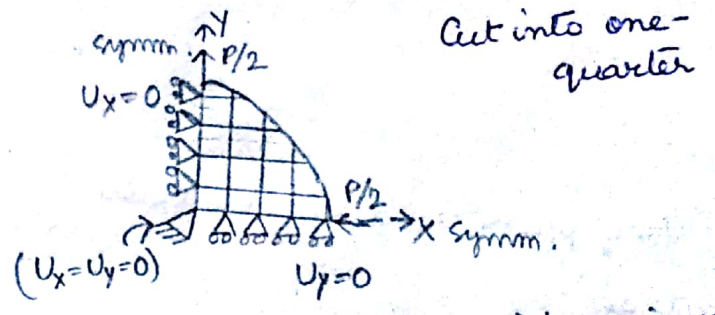 Y
symm.
P/2
Cut into one-
quarter
Ux=0
P/2
X symm.
(Ux=Uy=0)
Uy=0